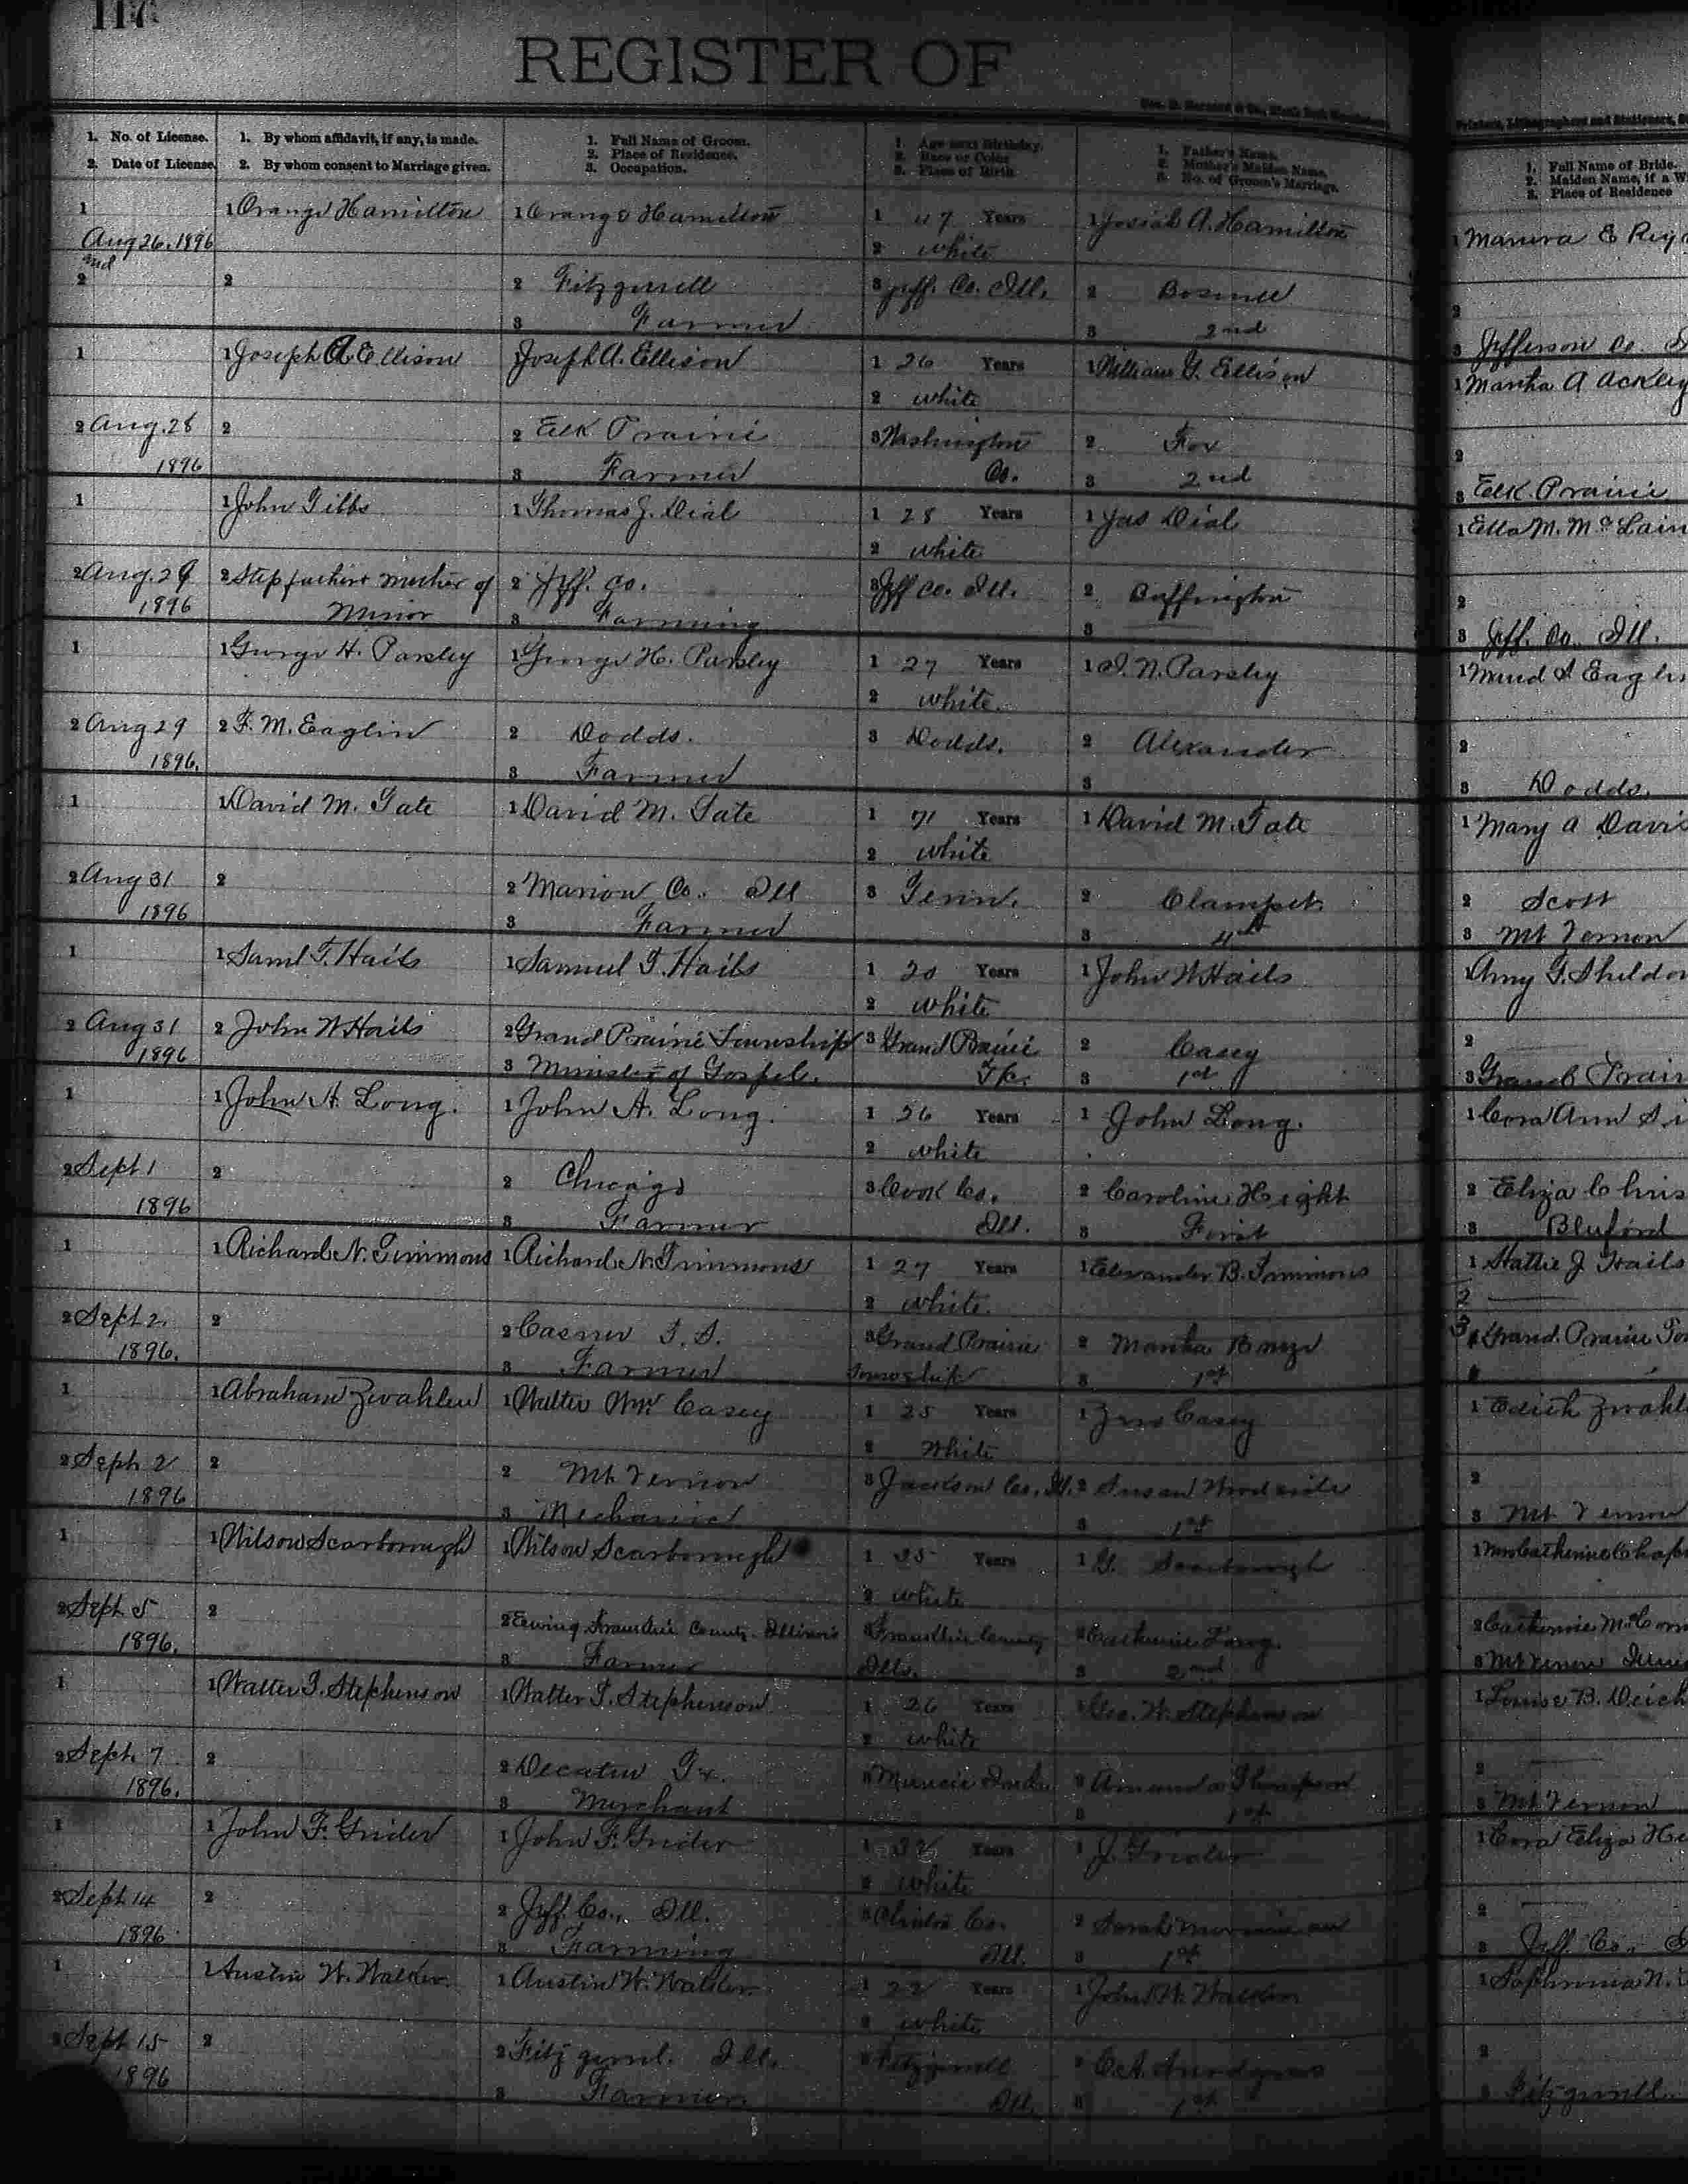 117
REGISTER OF
1. No. of License.
2. Date of License.
1. By whom affidavit, if any, is made.
2. By whom consent to Marriage given.
1. Full Name of Groom.
2. Place of Residence.
3. Occupation.
1. Age next Birthday.
2. Race or Color
3. Place of Birth
1. Father's Name.
2. Mother's Maiden Name.
3. No. of Groom's Marriage.
Printers, Lithographers and Stationers,
1. Full Name of Bride.
2. Maiden Name, if a W
3. Place of Residence
1
Aug 26, 1896
2
1 Orange Hamilton
2
1 Orange Hamilton
2 Fitzgerrell
3 Farmer
1 47 Years
2 white
3 Jeff. Co. Ill.
1 Josiah A. Hamilton
2 Boswell
3 2nd
3 Jefferson Co.
1
2 Aug. 28
1896
1 Joseph A Ellison
2
1 Joseph A. Ellison
2 Elk Prairie
3 Farmer
1 26 Years
2 white
3 Washington
Co.
1 William G. Ellison
2 Fox
3 2nd
1 Martha A Ackley
2
3 Elk Prairie
1
2 Aug. 29
1896
1 John Gibbs
2 Step father & mother of
Minor
1 Thomas J. Dial
2 Jeff. Co.
3 Farming
1 28 Years
2 white
3 Jeff Co. Ill.
1 Jas Dial
2 Buffington
3
1 Ella M. McLain
2
3 Jeff. Co. Ill.
1
2 Aug 29
1896.
1 George H. Parsley
2 F. M. Eaglin
1 George H. Parsley
2 Dodds.
3 Farmer
1 27 Years
2 white.
3 Dodds.
1 I. N. Parsley
2 Alexander
3
1 Maud S Eaglin
2
3 Dodds.
1
2 Aug 31
1896
1 David M. Tate
2
1 David M. Tate
2 Marion Co. Ill
3 Farmer
1 71 Years
2 white
3 Tenn.
1 David M. Tate
2 Clampet
3 4th
1 Mary A Davis
2 Scott
3 Mt Vernon
1
2 Aug 31
1896
1 Saml T. Hails
2 John W Hails
1 Samuel T. Hails
2 Grand Prairie Township
3 Minister of Gospel.
1 20 Years
2 white
3 Grand Prairie
Tp.
1 John W Hails
2 Casey
3 1st
1 Amy T. Sheldon
2
3 Grand Prair
1
2 Sept 1
1896
1 John A. Long.
2
1 John A. Long.
2 Chicago
3 Farmer
1 26 Years
2 white
3 Cook Co.
Ill.
1 John Long.
2 Caroline Height
3 First
1 Cora Ann Si
2 Eliza Chris
3 Bluford
1
2 Sept 2.
1896.
1 Richard N. Timmons
2
1 Richard N. Timmons
2 Casner T. S.
3 Farmer
1 27 Years
2 white.
3 Grand Prairie
Township
1 Alexander B. Timmons
2 Martha
3 1st
1 Hattie J Hails
2
3 Grand Prairie Tow
1
2 Sept. 2
1896
1 Abraham Zwahlen
2
1 Walter Wm. Casey
2 Mt Vernon
3 Mechanic
1 25 Years
2 White
3 Jackson Co. Ill.
1 Casey
2 Susan Woodside
3 1st
1 Edith Zwahl
2
3 Mt Vernon
1
2 Sept. 5
1896.
1 Wilson Scarborough
2
1 Wilson Scarborough
2 Ewing Franklin County Illinois
3 Farmer
1 Years
2 white
3 Franklin County
Ills.
1 G. Scarborough
2 Catherine
3 2nd
1 Mrs Catherine Chap
2 Catherine McCorm
3 Mt Vernon
1
2 Sept. 7
1896.
1 Walter T. Stephenson
2
1 Walter T. Stephenson
2 Decatur Tx.
3 Merchant
1 26 Years
2 white
3 Muncie
1 Geo. W. Stephenson
2 Amanda Thompson
3 1st
1 Louise B. Deich
2
3 Mt Vernon
1
2 Sept 14
1896
1 John F. Grider
2
1 John F. Grider
2 Jeff. Co., Ill.
3 Farming
1 Years
2 white
3 Clinton Co.
Ill.
1 J. Grider
2 Sarah
3 1st
1 Cora Eliza He
2
3 Jeff. Co.,
1
2 Sept 15
1896
1 Austin W. Walker
2
1 Austin W. Walker
2 Fitzgerrel. Ill.
3 Farmer.
1 22 Years
2 white
3 Fitzgerrell
Ill.
1 John W. Walker
2
3 1st
1 Sophronia N.
2
3 Fitzgerrell